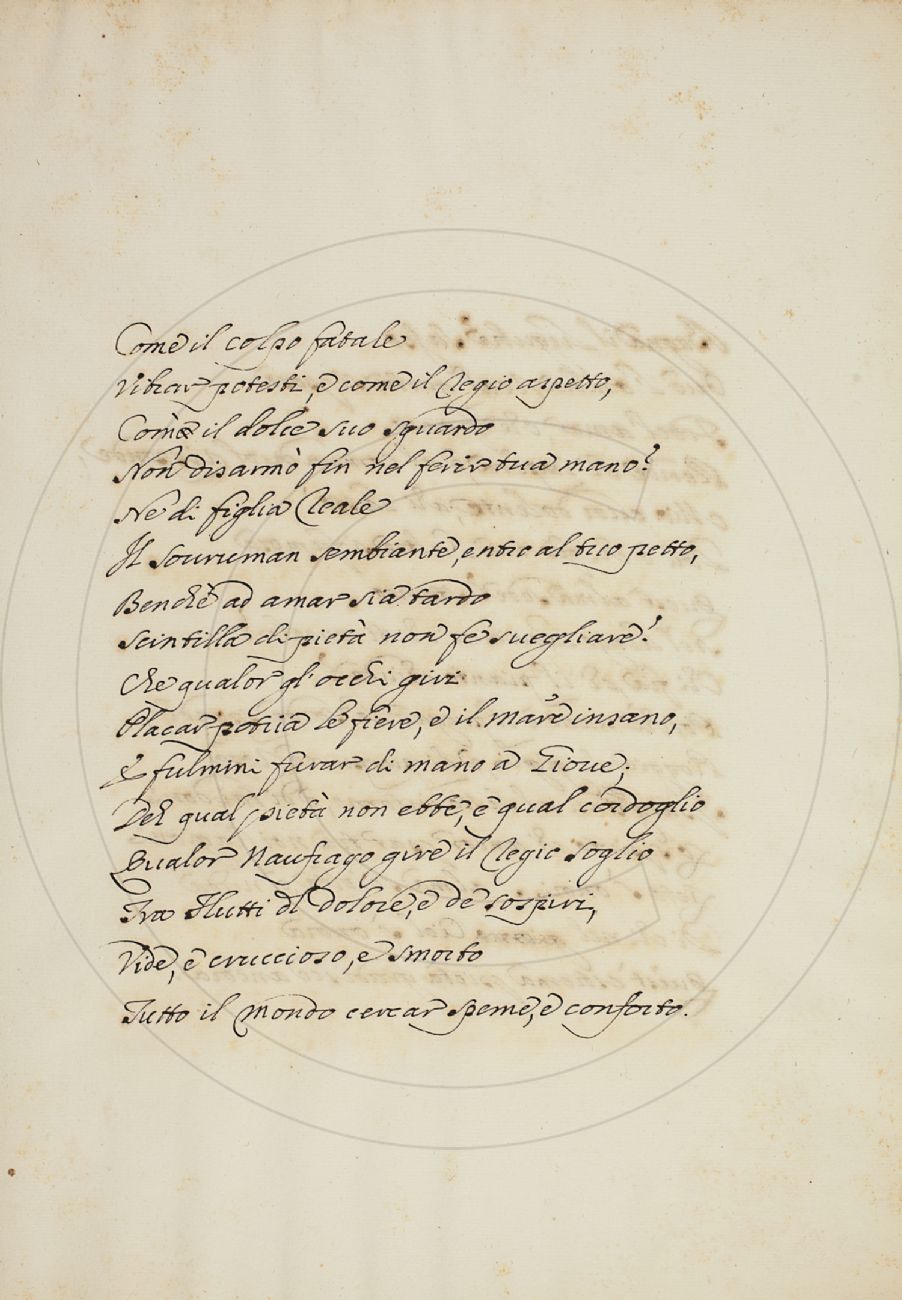 Come il colpo fatale
Vibrar potesti, e come il regio aspetto,
Come il dolce suo sguardo
Non disarmò fin nel ferir tua mano?
Ne di figlia reale
Il souruman sembiante, entro al tuo petto,
Benche ad amar sia tardo
Scintilla di pietà non fe suegliare?
Che qualor gl' occhi giri
Placar potria le fiere, e il mare insano,
E fulmini furar di mano a Gioue;
Deh qual pietà non ebbe, e qual cordoglio
Qualor Naufrago gire il regio soglio
Tra Flutti di dolore, e de sospiri,
Vide, e cruccioso, e smorto
Tutto il mondo cercar speme, e conforto.